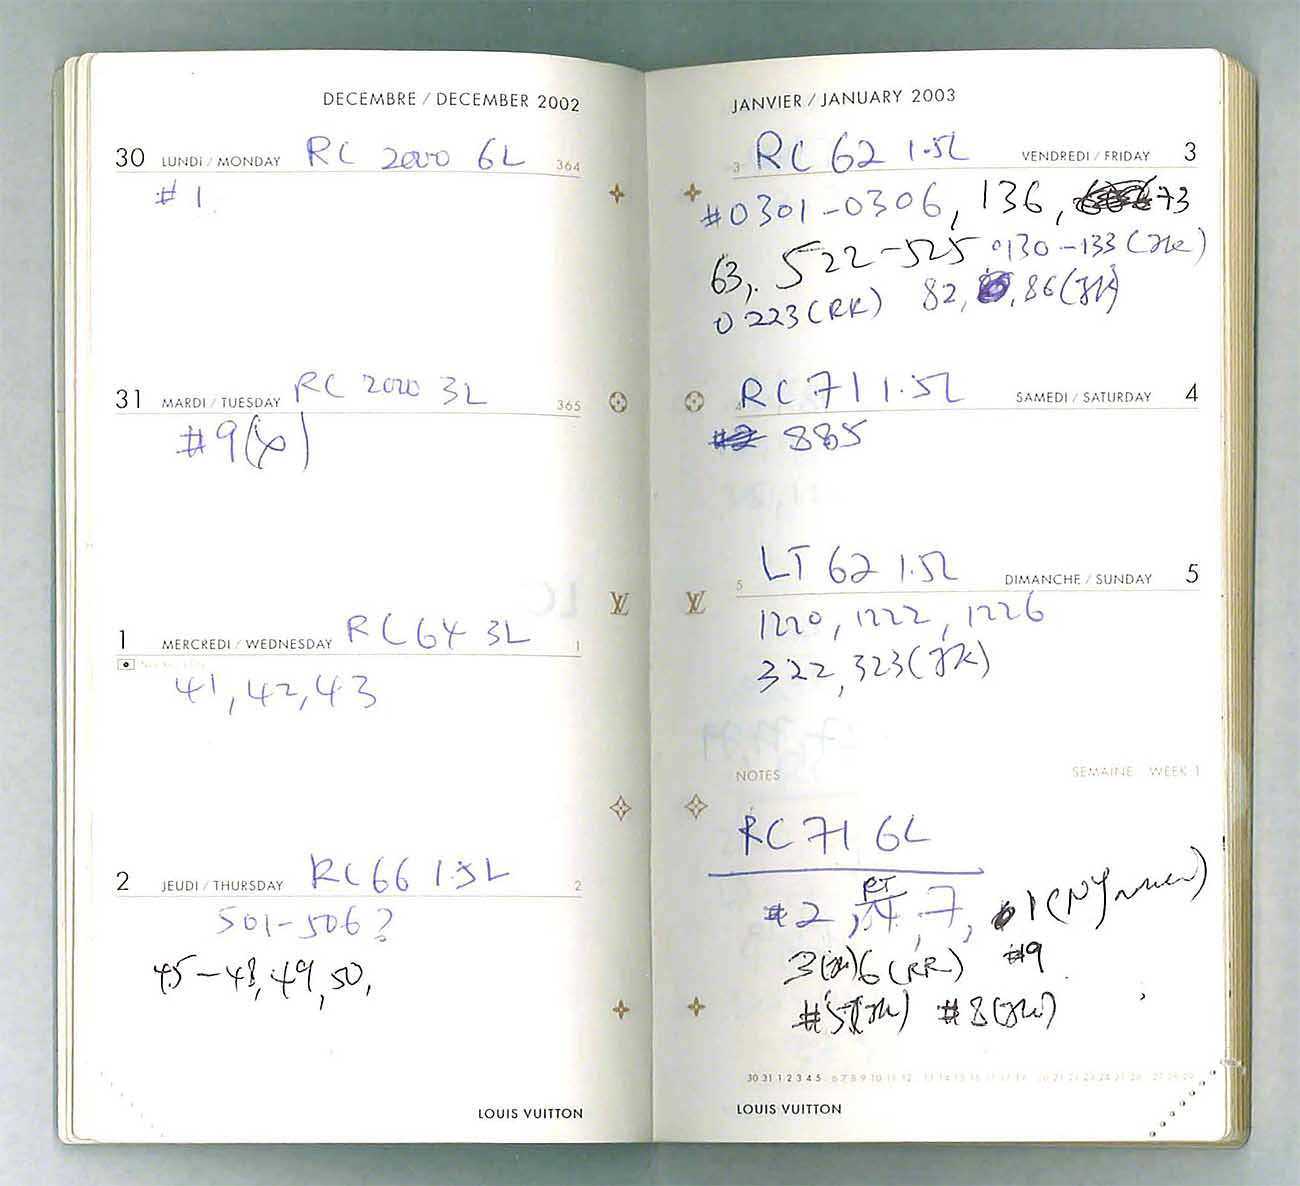 DECEMBRE / DECEMBER 2002
30 LUNDI / MONDAY RC 2000 6L 364
# 1
31 MARDI / TUESDAY RC 2000 3L 365
# 9
1 MERCREDI / WEDNESDAY RC 64 3L 1
41, 42, 43
2 JEUDI / THURSDAY RC 66 1.5L 2
501-506?
45-48, 49, 50,
LOUIS VUITTON
JANVIER / JANUARY 2003
3 RC 62 1.5L VENDREDI / FRIDAY 3
#0301-0306, 136, 73
63, 522-525 0130-133 (JK)
0223 (RR) 82, 86 (JK)
4 RC 71 1.5L SAMEDI / SATURDAY 4
885
5 LT 62 1.5L DIMANCHE / SUNDAY 5
1220, 1222, 1226
322, 323 (JK)
NOTES SEMAINE WEEK 1
RC 71 6L
RT
#2, 4, 7, 1 (NY
3 (JK) 6 (RR) #9
#5 (JK) #8 (JK)
30 31 1 2 3 4 5 6 7 8 9 10 11 12
LOUIS VUITTON